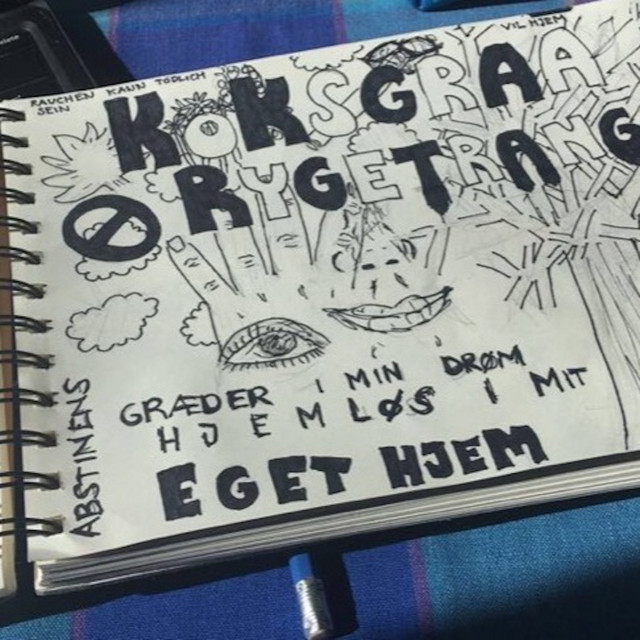 RAUCHEN KAUN TÖDLICH
SEIN
VIL HJEM
KOKSGRAA
RYGETRANG
GRÆDER I MIN DRØM
HJEMLØS I MIT
EGET HJEM
ABSTINENS